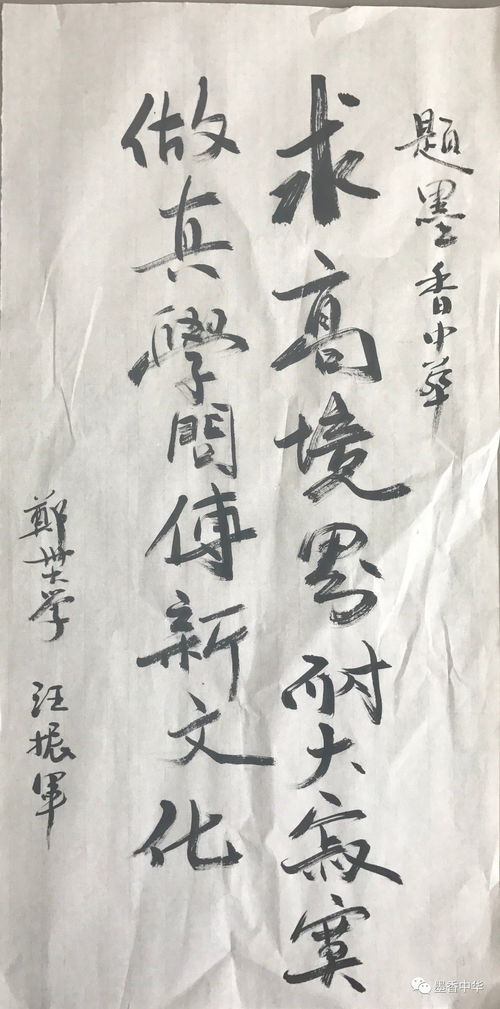 題墨香中華
求高境界耐大寂寞
做真學問傳新文化
鄭州大学 汪振軍
墨香中华